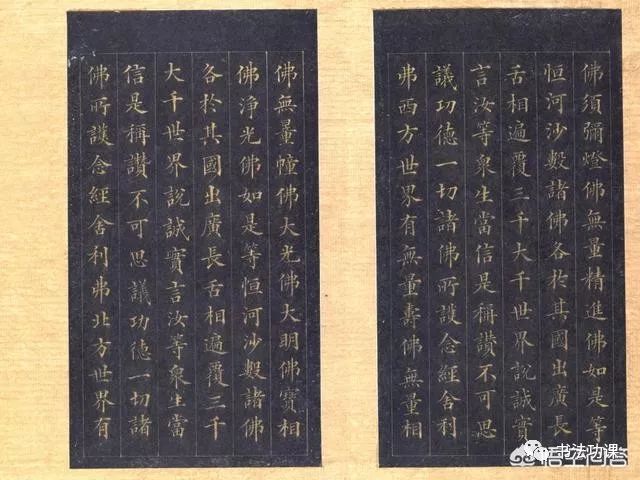 佛須彌燈佛無量精進佛如是等
恒河沙數諸佛各於其國出廣長
舌相遍覆三千大千世界說誠實
言汝等衆生當信是稱讚不可思
議功德一切諸佛所護念經舍利
弗西方世界有無量壽佛無量相
佛無量幢佛大光佛大明佛寶相
佛淨光佛如是等恒河沙數諸佛
各於其國出廣長舌相遍覆三千
大千世界說誠實言汝等衆生當
信是稱讚不可思議功德一切諸
佛所護念經舍利弗北方世界有
书法功课